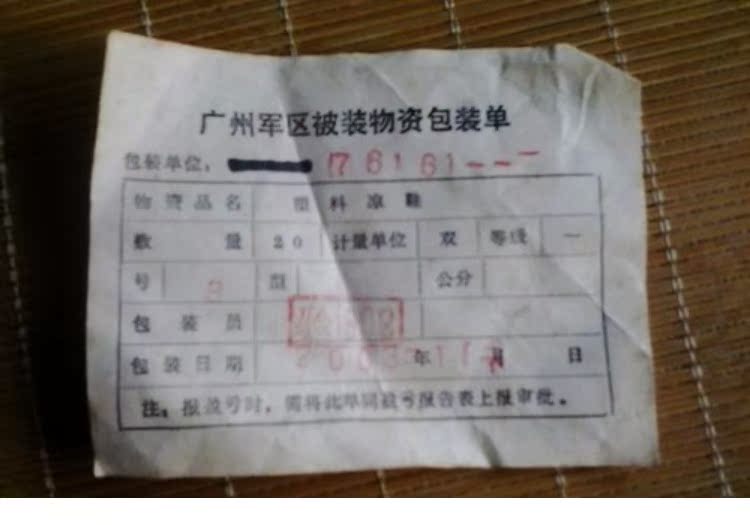 广州军区被装物资包装单
包装单位: 76161---
物资品名 塑料凉鞋
数量 20 计量单位 双 等级 一
号 型 公分
包装员
包装日期 2003年11月 日
注:报盈亏时,需将此单同盈亏报告表上报审批。